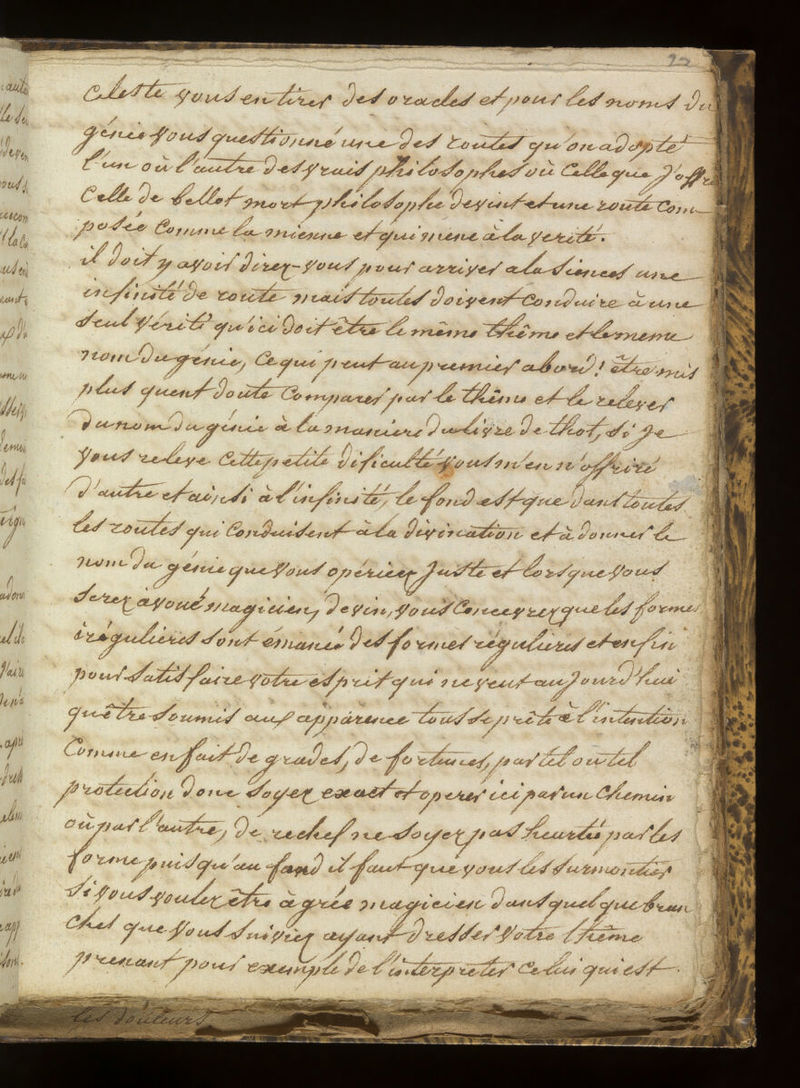 22
Celeste vous en tirer des oracles et pour les noms du
génie vous questionné une des routes qu'on adopté
l'un où l'autre des vrais philosophes où Celle que J'offre
Celle de bellot mort philosophe devint et une route Com-
posée Comme la mienne et qui mene à la verité.
il doit y avoir direz-vous pour arriver a la Siences une
infinité de route mais toutes doivent Conduire à une
Seul Vérité qu'ici doit être le même thême et le meme
nom du génie, Ce qui peut au premier abord! être mis
plus quent doute Comparer par le thême et le relever
du nom du génie à la maniere du livre de thot, Si Je
Vous releve Cette petite dificulté vous m'en n'offriré
d'autre et ainsi à l'infinité, le fond est que dans toutes
les routes qui Conduisent à la divination et à donner le
nom du génie que Vous opériez Juste et lorsque vous
Serez avoué magicien, devin, vous Concevrez que les formes
iréguliéres sont émanée des formes régulieres et enfin
pour Satisfaire votre esprit qui ne veut au Jourd'huï
qu'être Soumis aux apparence tout se prête à l'intention
Comme en fait de grades, de fortunes, par tel ou tel
protection donc Soyez exact et operer ici par un Chemin
où par l'autre, de rechef ne Soyez pas heurtée par les
forme puisqu'au fond il faut que vous les Surmontier
Si vous voulez être àgrée magicien dans quel que bran
ches que Vous Suiviez ayant dresser Votre thême
prenant pour exemple de l'interpreter Celui qui est
les douleurs